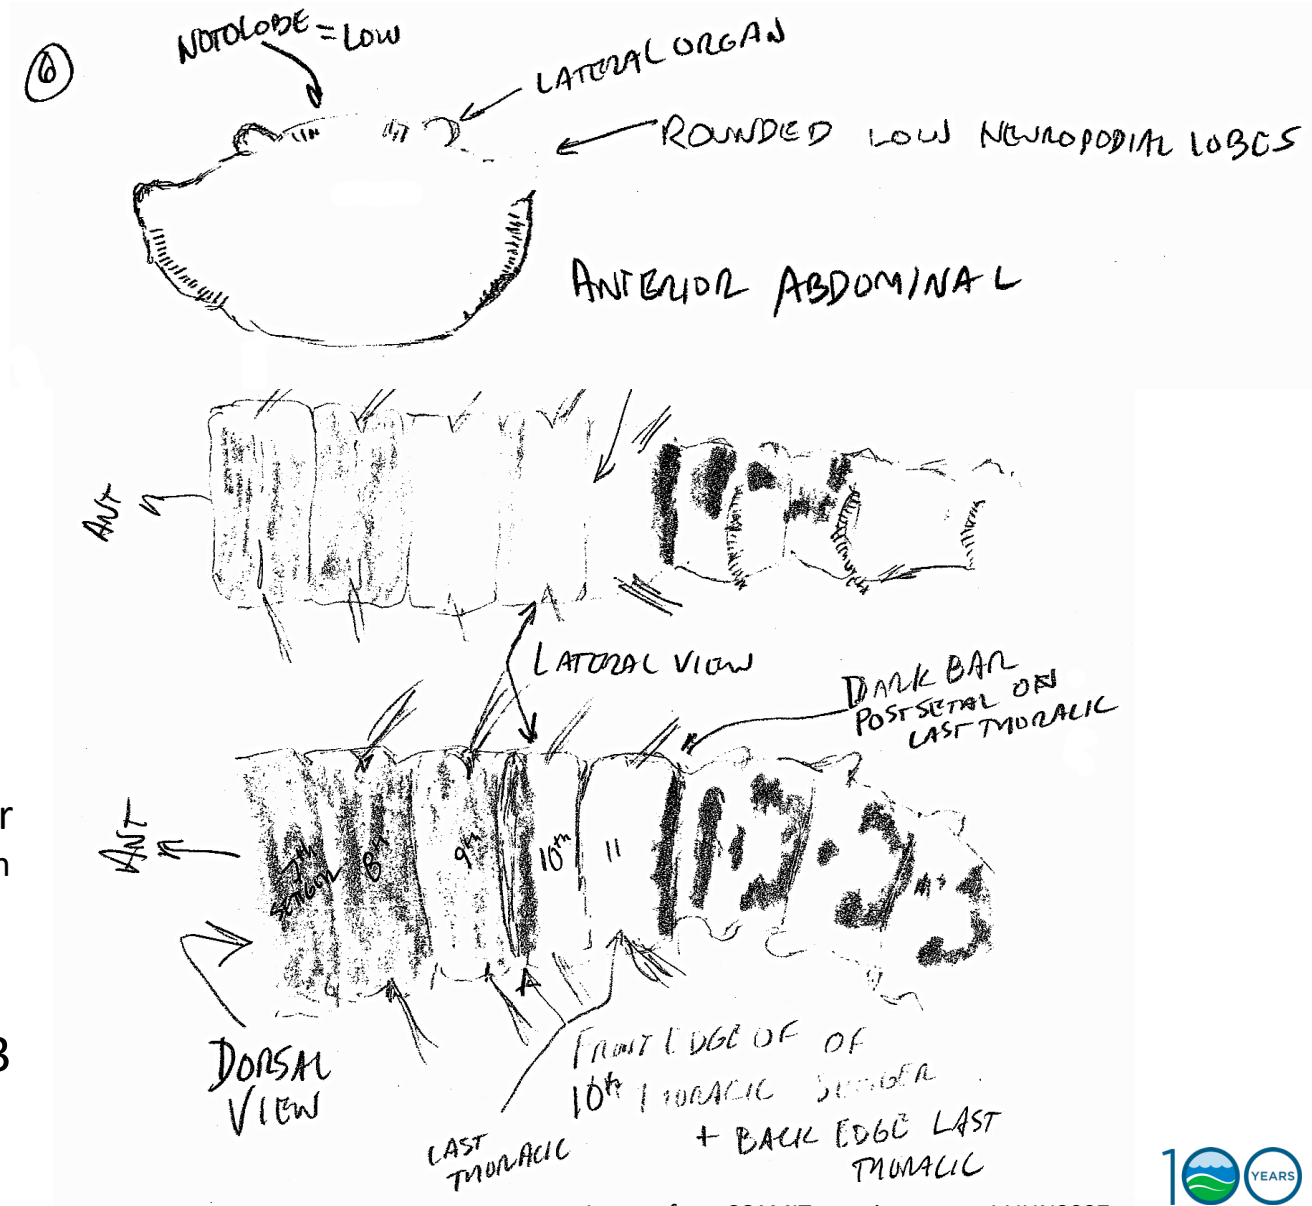 6
NOTOLOBE = LOW
LATERAL ORGAN
ROUNDED LOW NEUROPODIAL LOBES
ANTERIOR ABDOMINAL
ANT
LATERAL VIEW
DARK BAR
POSTSETAL ON
LAST THORACIC
ANT
7th
SETIGER
8th
9th
10th
11
r
n
3
DORSAL
VIEW
LAST
THORACIC
FRONT EDGE OF OF
10th THORACIC
+ BACK EDGE LAST
THORACIC
100
YEARS